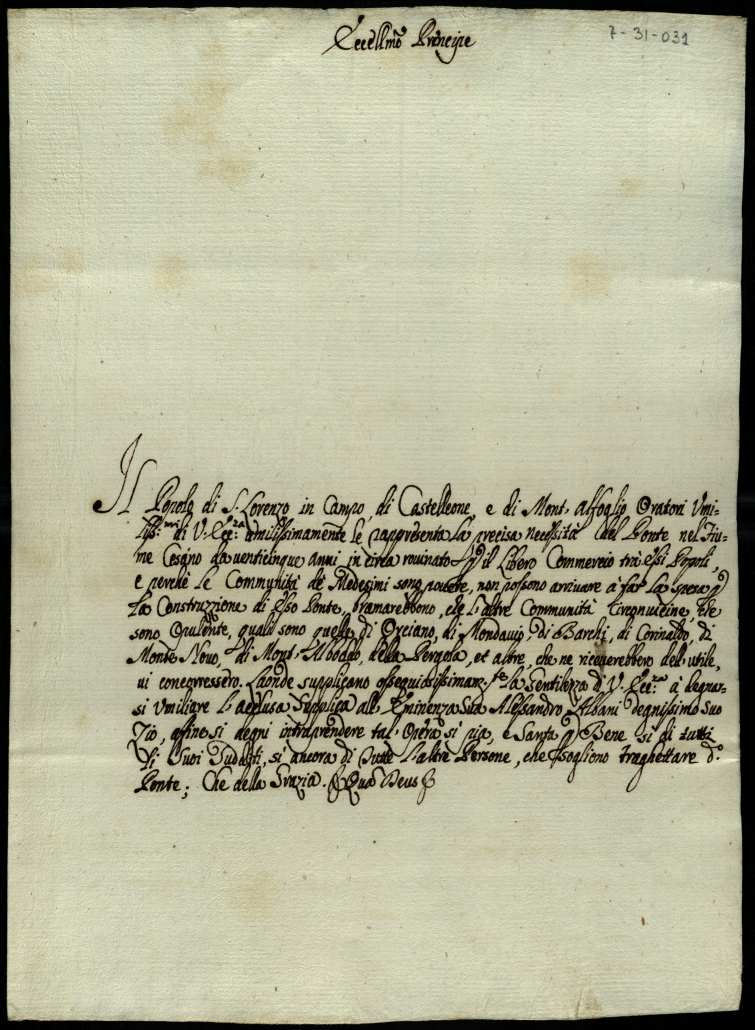 Eccellmo Principe
7-31-031
Il Popolo di S. Lorenzo in Campo, di Castelleone, e di Mont' alfoglio Oratori Umi-
liss:mi di V. Ecc:za umilissimamente le rappresenta la precisa necessità del Ponte nel Fiu-
me Cesano da venticinque anni in circa rovinato p il libero Commercio trà essi Popoli,
e perche le Communità de Medesimi sono povere, non possono arrivare à far la spesa p
la Construzzione di esso Ponte, bramarebbono, che l'altre Communità Circonvicine, che
sono Opulente, quali sono quella di Orciano, di Mondavio, di Barchi, di Corinaldo, di
Monte Novo, di Mont' Alboddo, della Pergola, et altre, che ne riceverebbero dell' utile,
vi concorressero. Laonde supplicano ossequiosissimam:te la Gentilezza d' V. Ecc:za à degnar-
si Umiliare l' acclusa Supplica all' Eminenza Sua Alessandro Albani degnissimo suo
Zio, affine si degni intraprendere tal' Opera sì pia, e Santa p Bene sì di tutti
li Suoi Sudditi, sì ancora di tutte l'altre Persone, che sogliono traghettare d.o
Ponte; Che della Grazia. Qua Deus